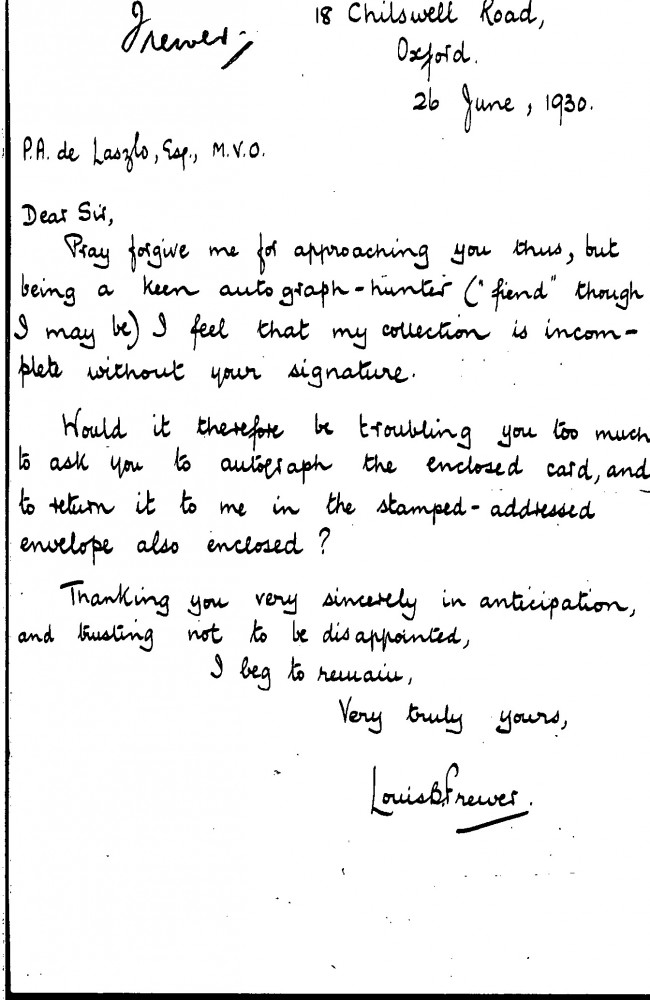 Frewer.
18 Chilswell Road,
Oxford.
26 June, 1930.
P.A. de Laszlo, Esq., M.V.O.
Dear Sir,
Pray forgive me for approaching you thus, but
being a keen autograph-hunter ("fiend" though
I may be) I feel that my collection is incom-
plete without your signature.
Would it therefore be troubling you too much
to ask you to autograph the enclosed card, and
to return it to me in the stamped-addressed
envelope also enclosed?
Thanking you very sincerely in anticipation,
and trusting not to be disappointed,
I beg to remain,
Very truly yours,
Louis B. Frewer.